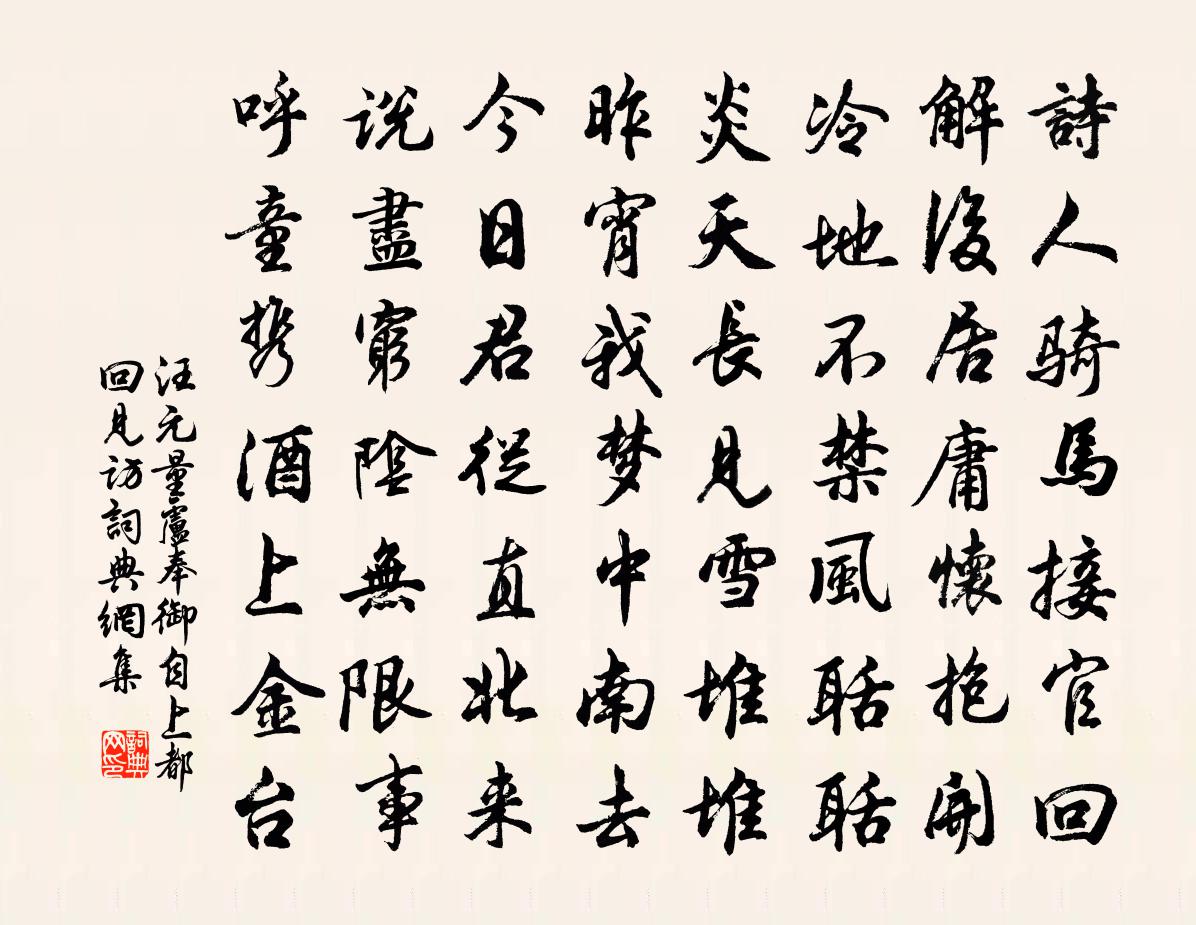 詩人騎馬接官回
解後居庸懷抱開
冷地不禁風聒聒
炎天長見雪堆堆
昨宵我梦中南去
今日君從直北来
説盡窮陰無限事
呼童携酒上金台
汪元量盧奉御自上都
回見訪詞典網集
詞典
网印